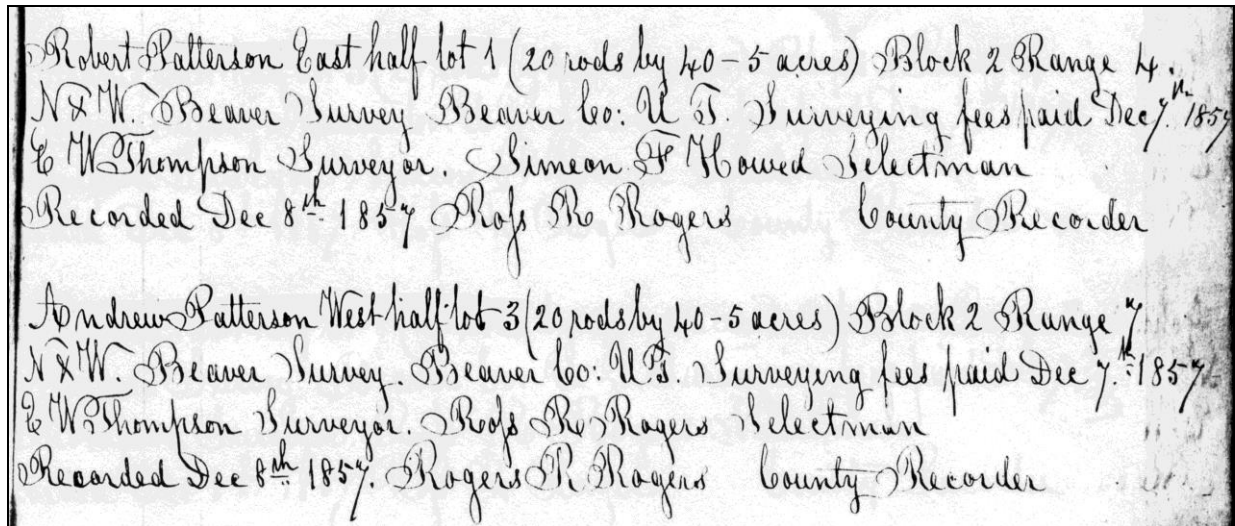 Robert Patterson East half lot 1 (20 rods by 40 - 5 acres) Block 2 Range 4.
N & W. Beaver Survey Beaver Co: U T. Surveying fees paid Dec 7th. 1857
E W Thompson Surveyor. Simeon F Howed Selectman
Recorded Dec 8th 1857 Ross R Rogers County Recorder
Andrew Patterson West half lot 3 (20 rods by 40 - 5 acres) Block 2 Range 7
N & W. Beaver Survey. Beaver Co: U.T. Surveying fees paid Dec 7.th 1857
E W Thompson Surveyor. Ross R Rogers Selectman
Recorded Dec 8th 1857. Rogers R Rogers County Recorder